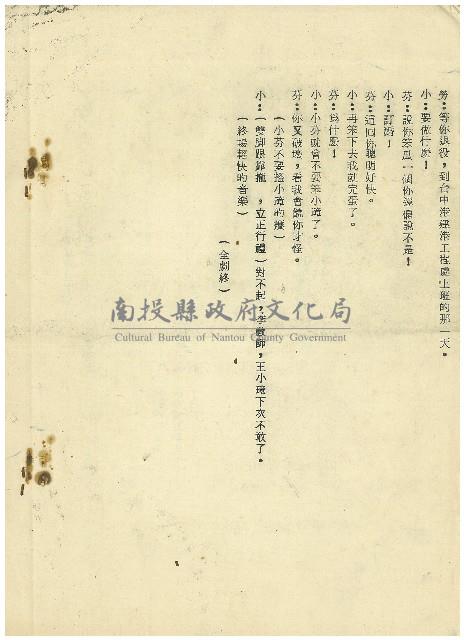 芬：等你退役，到台中港建港工程處上班的那一天。
小：要做什麼！
芬：說你笨瓜一個你還偏說不是！
小：訂婚！
芬：這回你聰明好快。
小：再笨下去我就完蛋了。
芬：為什麼！
小：小芬就會不要笨小璋了。
芬：你又破壞，看我會饒你才怪。
（小芬不要搔小璋的癢）
小：（雙腳跟靠攏，立正行禮）對不起，李教師，王小璋下次不敢了。
（終場輕快的音樂）
（全劇終）
南投縣政府文化局
Cultural Bureau of Nantou County Government